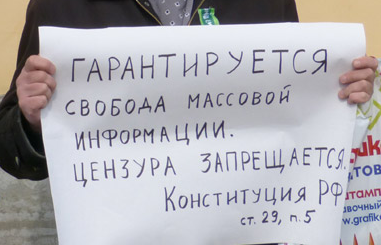 ГАРАНТИРУЕТСЯ
СВОБОДА МАССОВОЙ
ИНФОРМАЦИИ.
ЦЕНЗУРА ЗАПРЕЩАЕТСЯ.
КОНСТИТУЦИЯ РФ
ст. 29, п.5
www.grafika